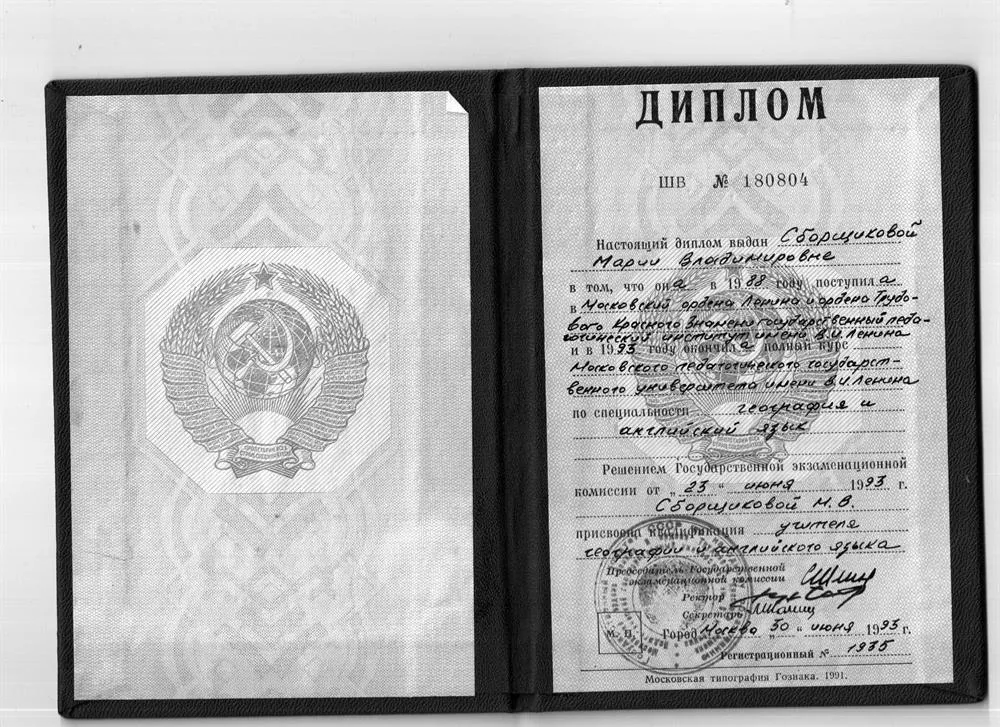 ДИПЛОМ
ШВ № 180804
Настоящий диплом выдан Сборщиковой
Марии Владимировне
в том, что она в 1988 году поступила
в Московский ордена Ленина и ордена Трудо-
вого Красного Знамени государственный педа-
гогический институт имени В.И.Ленина
и в 1993 году окончила полный курс
Московского педагогического государст-
венного университета имени В.И.Ленина
по специальности география и
английский язык
Решением Государственной экзаменационной
комиссии от „23“ июня 1993 г.
Сборщиковой М.В.
присвоена квалификация учителя
географии и английского языка
Председатель Государственной
экзаменационной комиссии
Ректор
Секретарь
М. П.
Город Москва „30“ июня 1993 г.
Регистрационный № 1935
Московская типография Гознака. 1991.